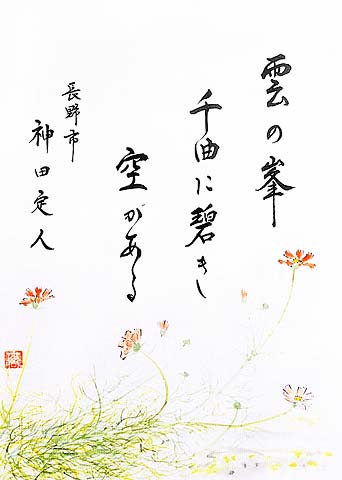 雲の峯
千曲に碧きし
空がある
長野市
神田定人